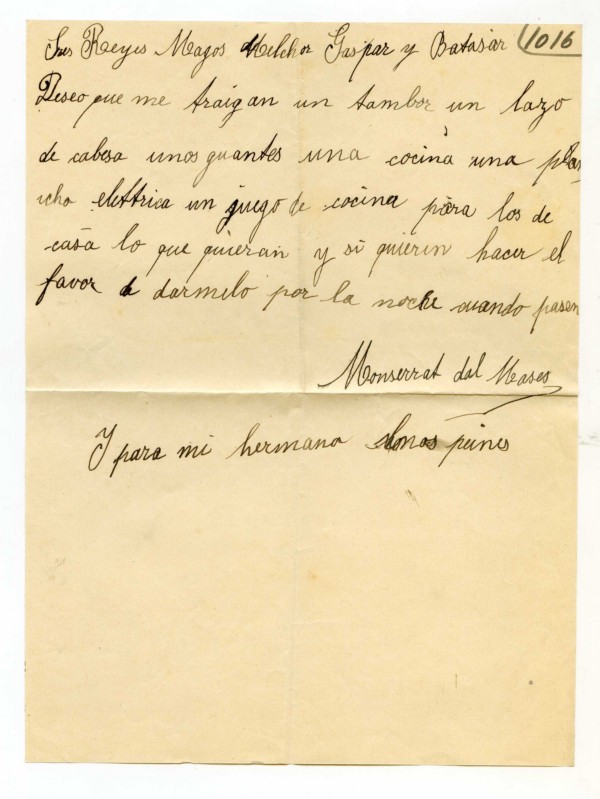 Sres Reyes Magos Melchor Gaspar y Batasar 1016
Deseo que me traigan un tambor un lazo
de cabesa unos guantes una cocina una plan
cha elettrica un juego de cocina para los de
casa lo que quieran y si quieren hacer el
favor de darmelo por la noche cuando pasen
Monserrat dal Mases
Y para mi hermano unos peines